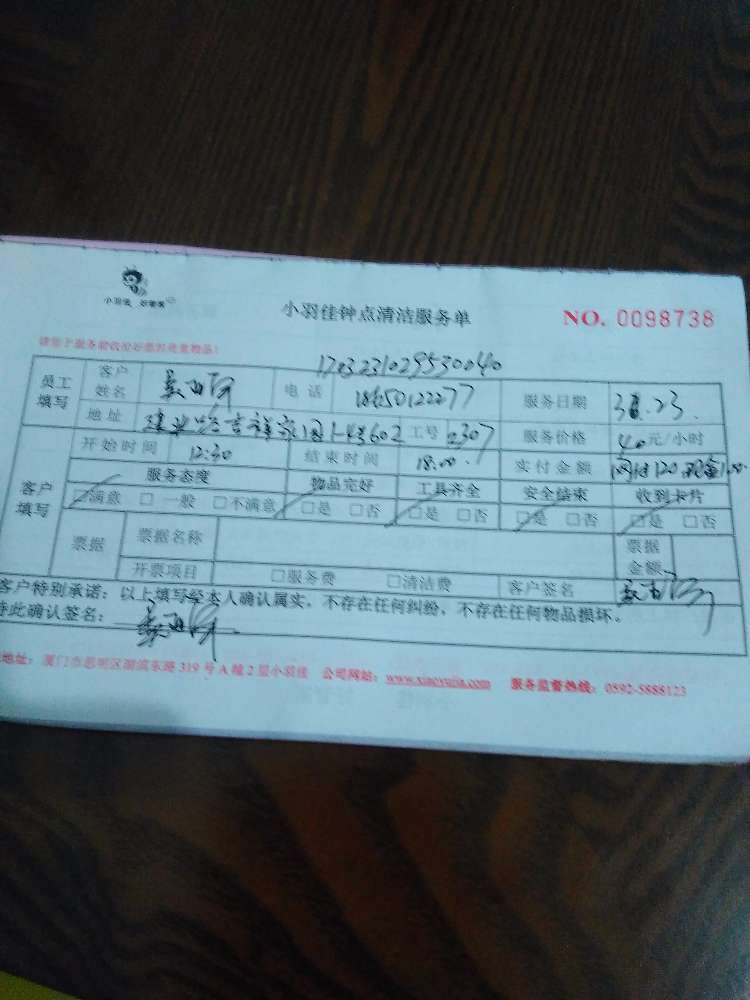 小羽佳
小羽佳钟点清洁服务单
NO. 0098738
1703231029530040
员工填写 客户姓名 电话 18650122277 服务日期 3.23.
地址 吉祥家园 602 工号 2307 服务价格 40元/小时
客户填写 开始时间 12:30 结束时间 18:00. 实付金额 网付120 现金100
服务态度 物品完好 工具齐全 安全结束 收到卡片
□满意 □一般 □不满意 □是 □否 □是 □否 □是 □否 □是 □否
票据 票据名称 票据金额
开票项目 □服务费 □清洁费 客户签名
客户特别承诺：以上填写经本人确认属实，不存在任何纠纷，不存在任何物品损坏。
特此确认签名：
地址：厦门市思明区湖滨东路 319 号 A 幢 2 层小羽佳 公司网站：www.xiaoyujia.com 服务监督热线：0592-5888123